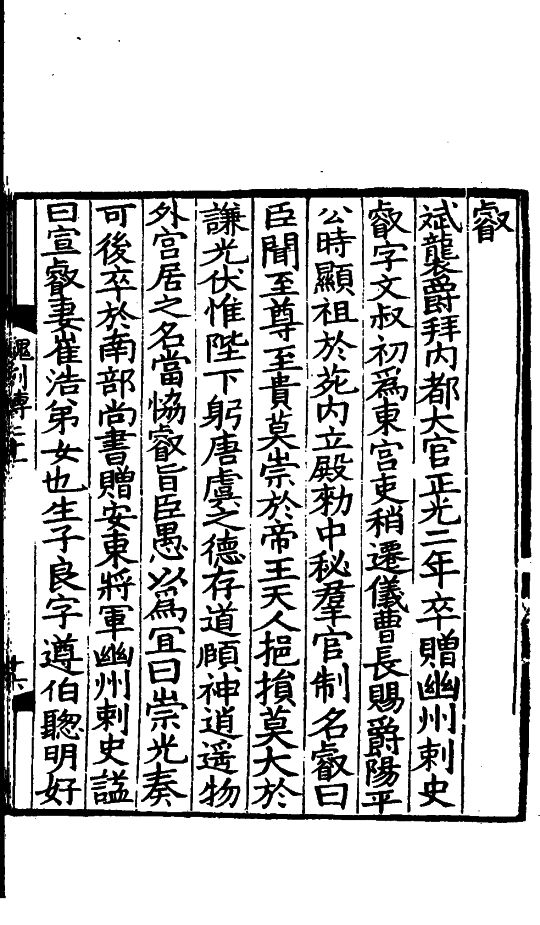 叡
斌襲爵拜内都大官正光二年卒贈幽州刺史
叡字文叔初爲東宫吏稍遷儀曹長賜爵陽平
公時顯祖於苑内立殿勑中秘羣官制名叡曰
臣聞至尊至貴莫崇於帝王天人挹損莫大於
謙光伏惟陛下躬唐虞之德存道頤神逍遥物
外宫居之名當恊叡旨臣愚以爲冝曰崇光奏
可後卒於南部尚書贈安東將軍幽州刺史謚
曰宣叡妻崔浩弟女也生子良字遵伯聦明好